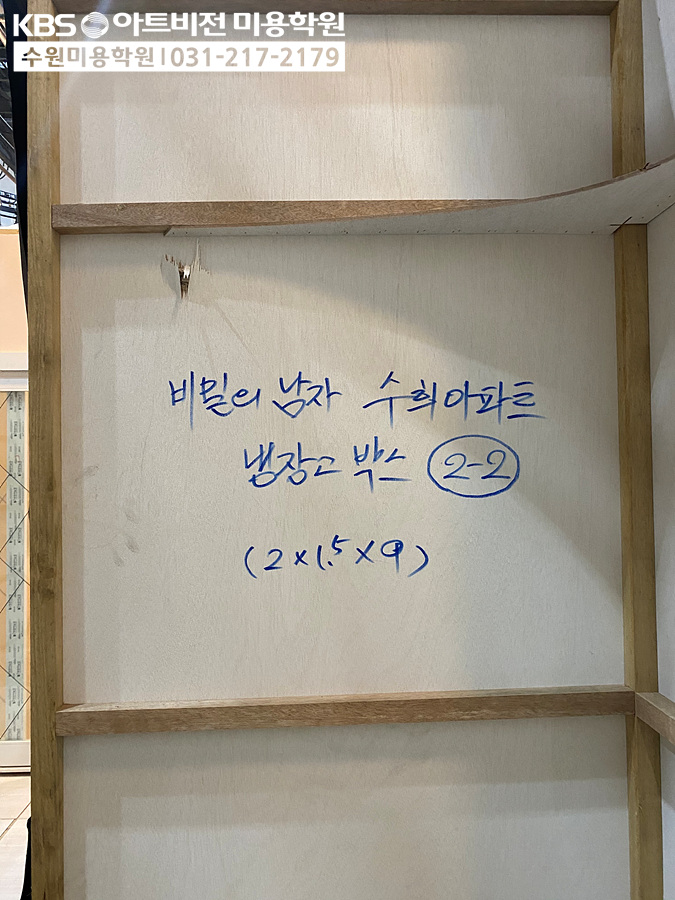 KBS 아트비전 미용학원
수원미용학원 | 031-217-2179
비밀의 남자 수희아파트
냉장고 박스 2-2
(2×1.5×9)